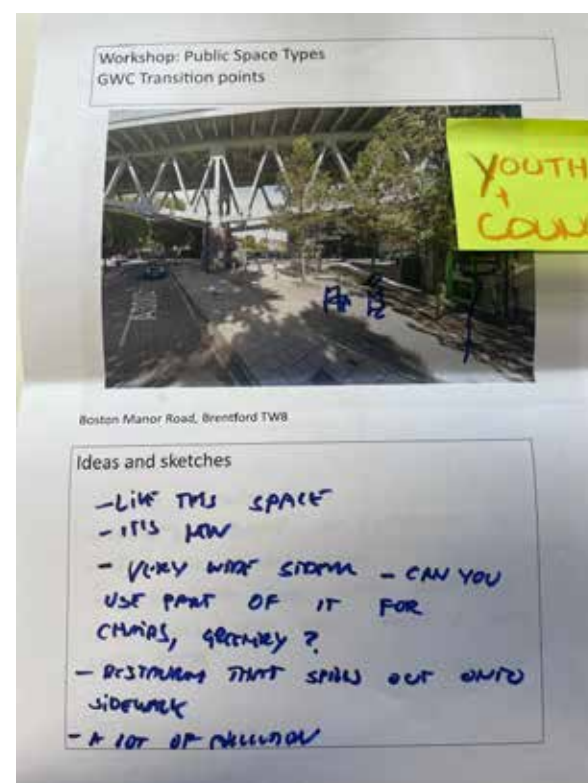 Workshop: Public Space Types
GWC Transition points
YOUTH
+
COUN
Boston Manor Road, Brentford TW8
Ideas and sketches
- LIKE THIS SPACE
- IT'S
- VERY WIDE - CAN YOU
USE PART OF IT FOR
CHAIRS, GREENERY ?
- RESTAURANT THAT SPILLS OUT ONTO
SIDEWALK
- A LOT OF POLLUTION